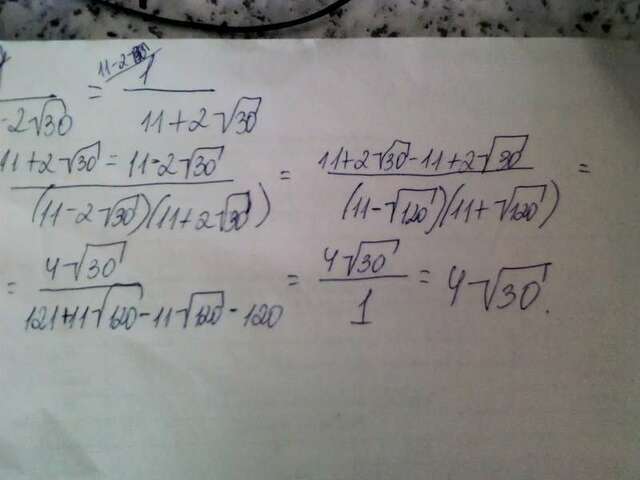 11-2√30
1/(-2√30) = 1/(11+2√30)
(11+2√30 = 11-2√30)/((11-2√30)(11+2√30)) = (11+2√30-11+2√30)/((11-√120)(11+√120)) =
= 4√30/(121+11√120-11√120-120) = 4√30/1 = 4√30.